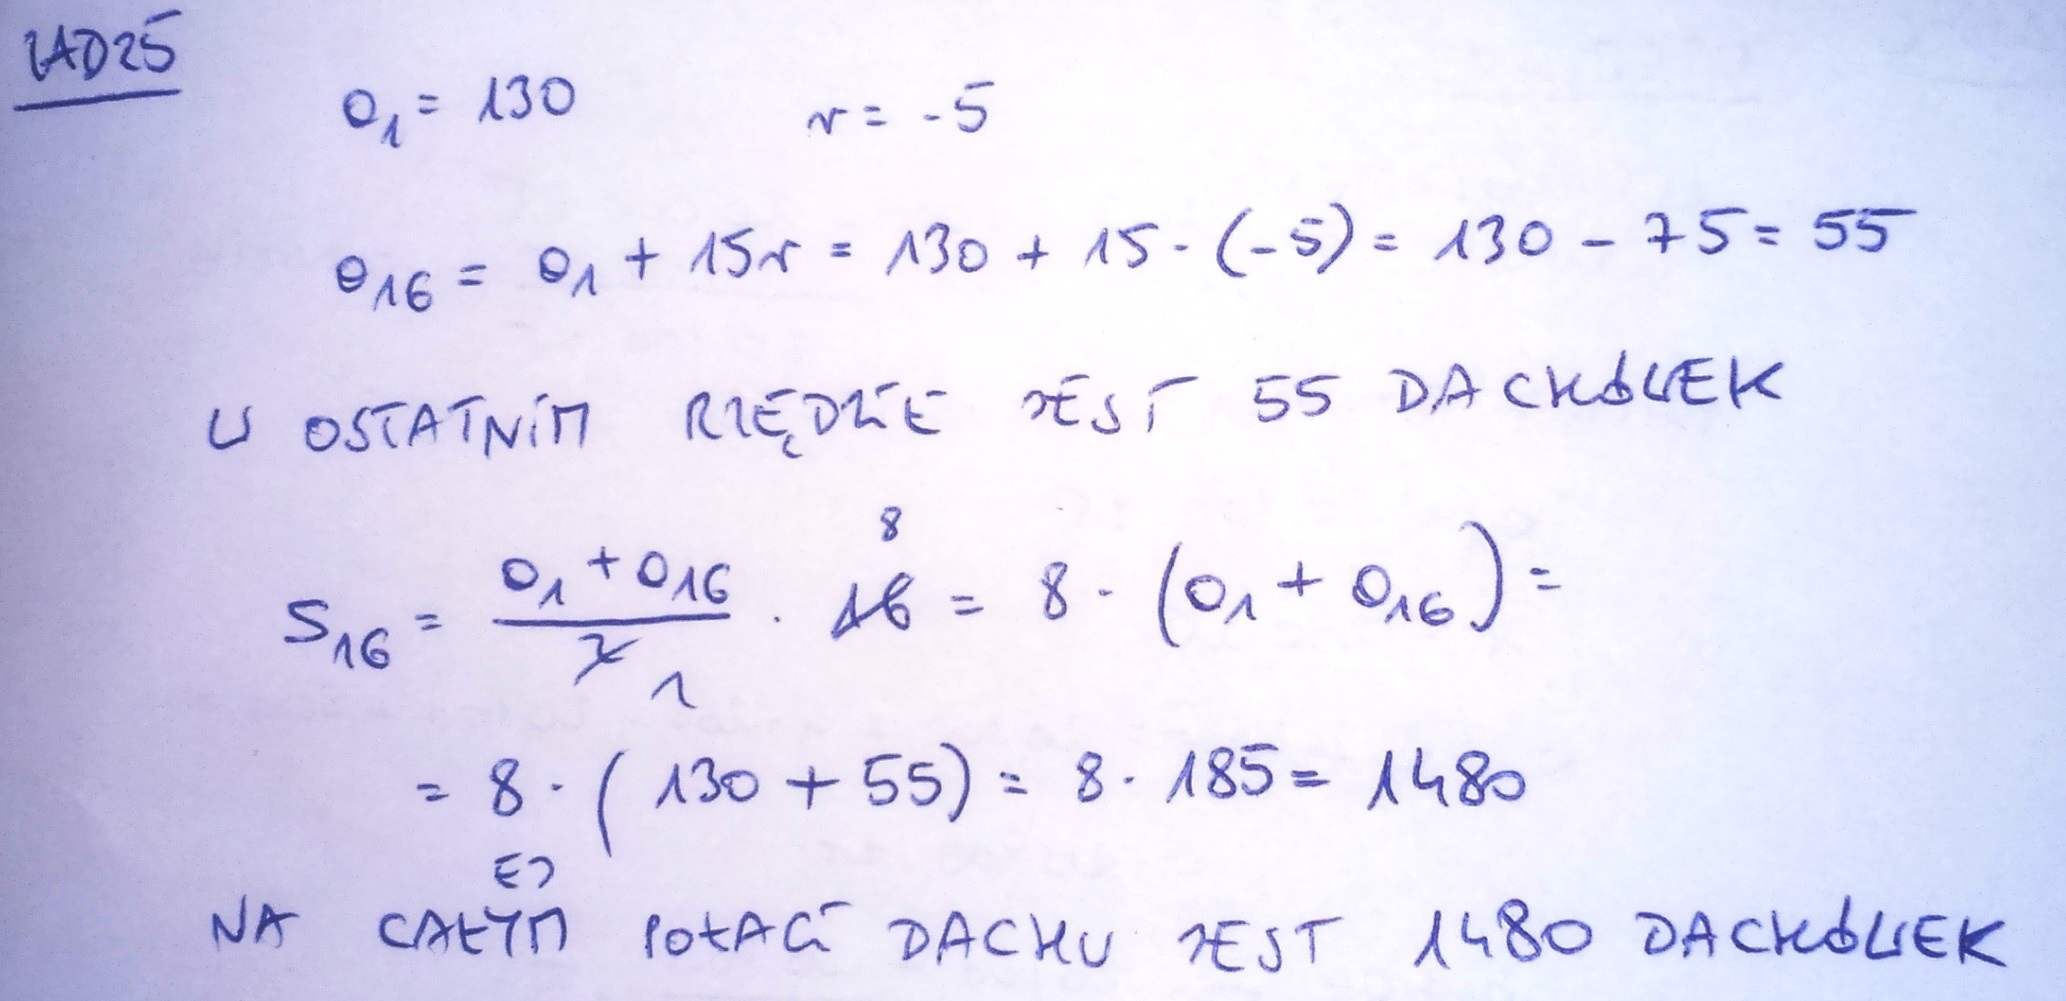 ZAD25
a₁ = 130 r = -5
a₁₆ = a₁ + 15r = 130 + 15 · (-5) = 130 - 75 = 55
W OSTATNIM RZĘDZIE JEST 55 DACHÓWEK
8
S₁₆ = (a₁ + a₁₆)/2 · 16 = 8 · (a₁ + a₁₆) =
1
= 8 · (130 + 55) = 8 · 185 = 1480
EJ
NA CAŁYM POŁACI DACHU JEST 1480 DACHÓWEK